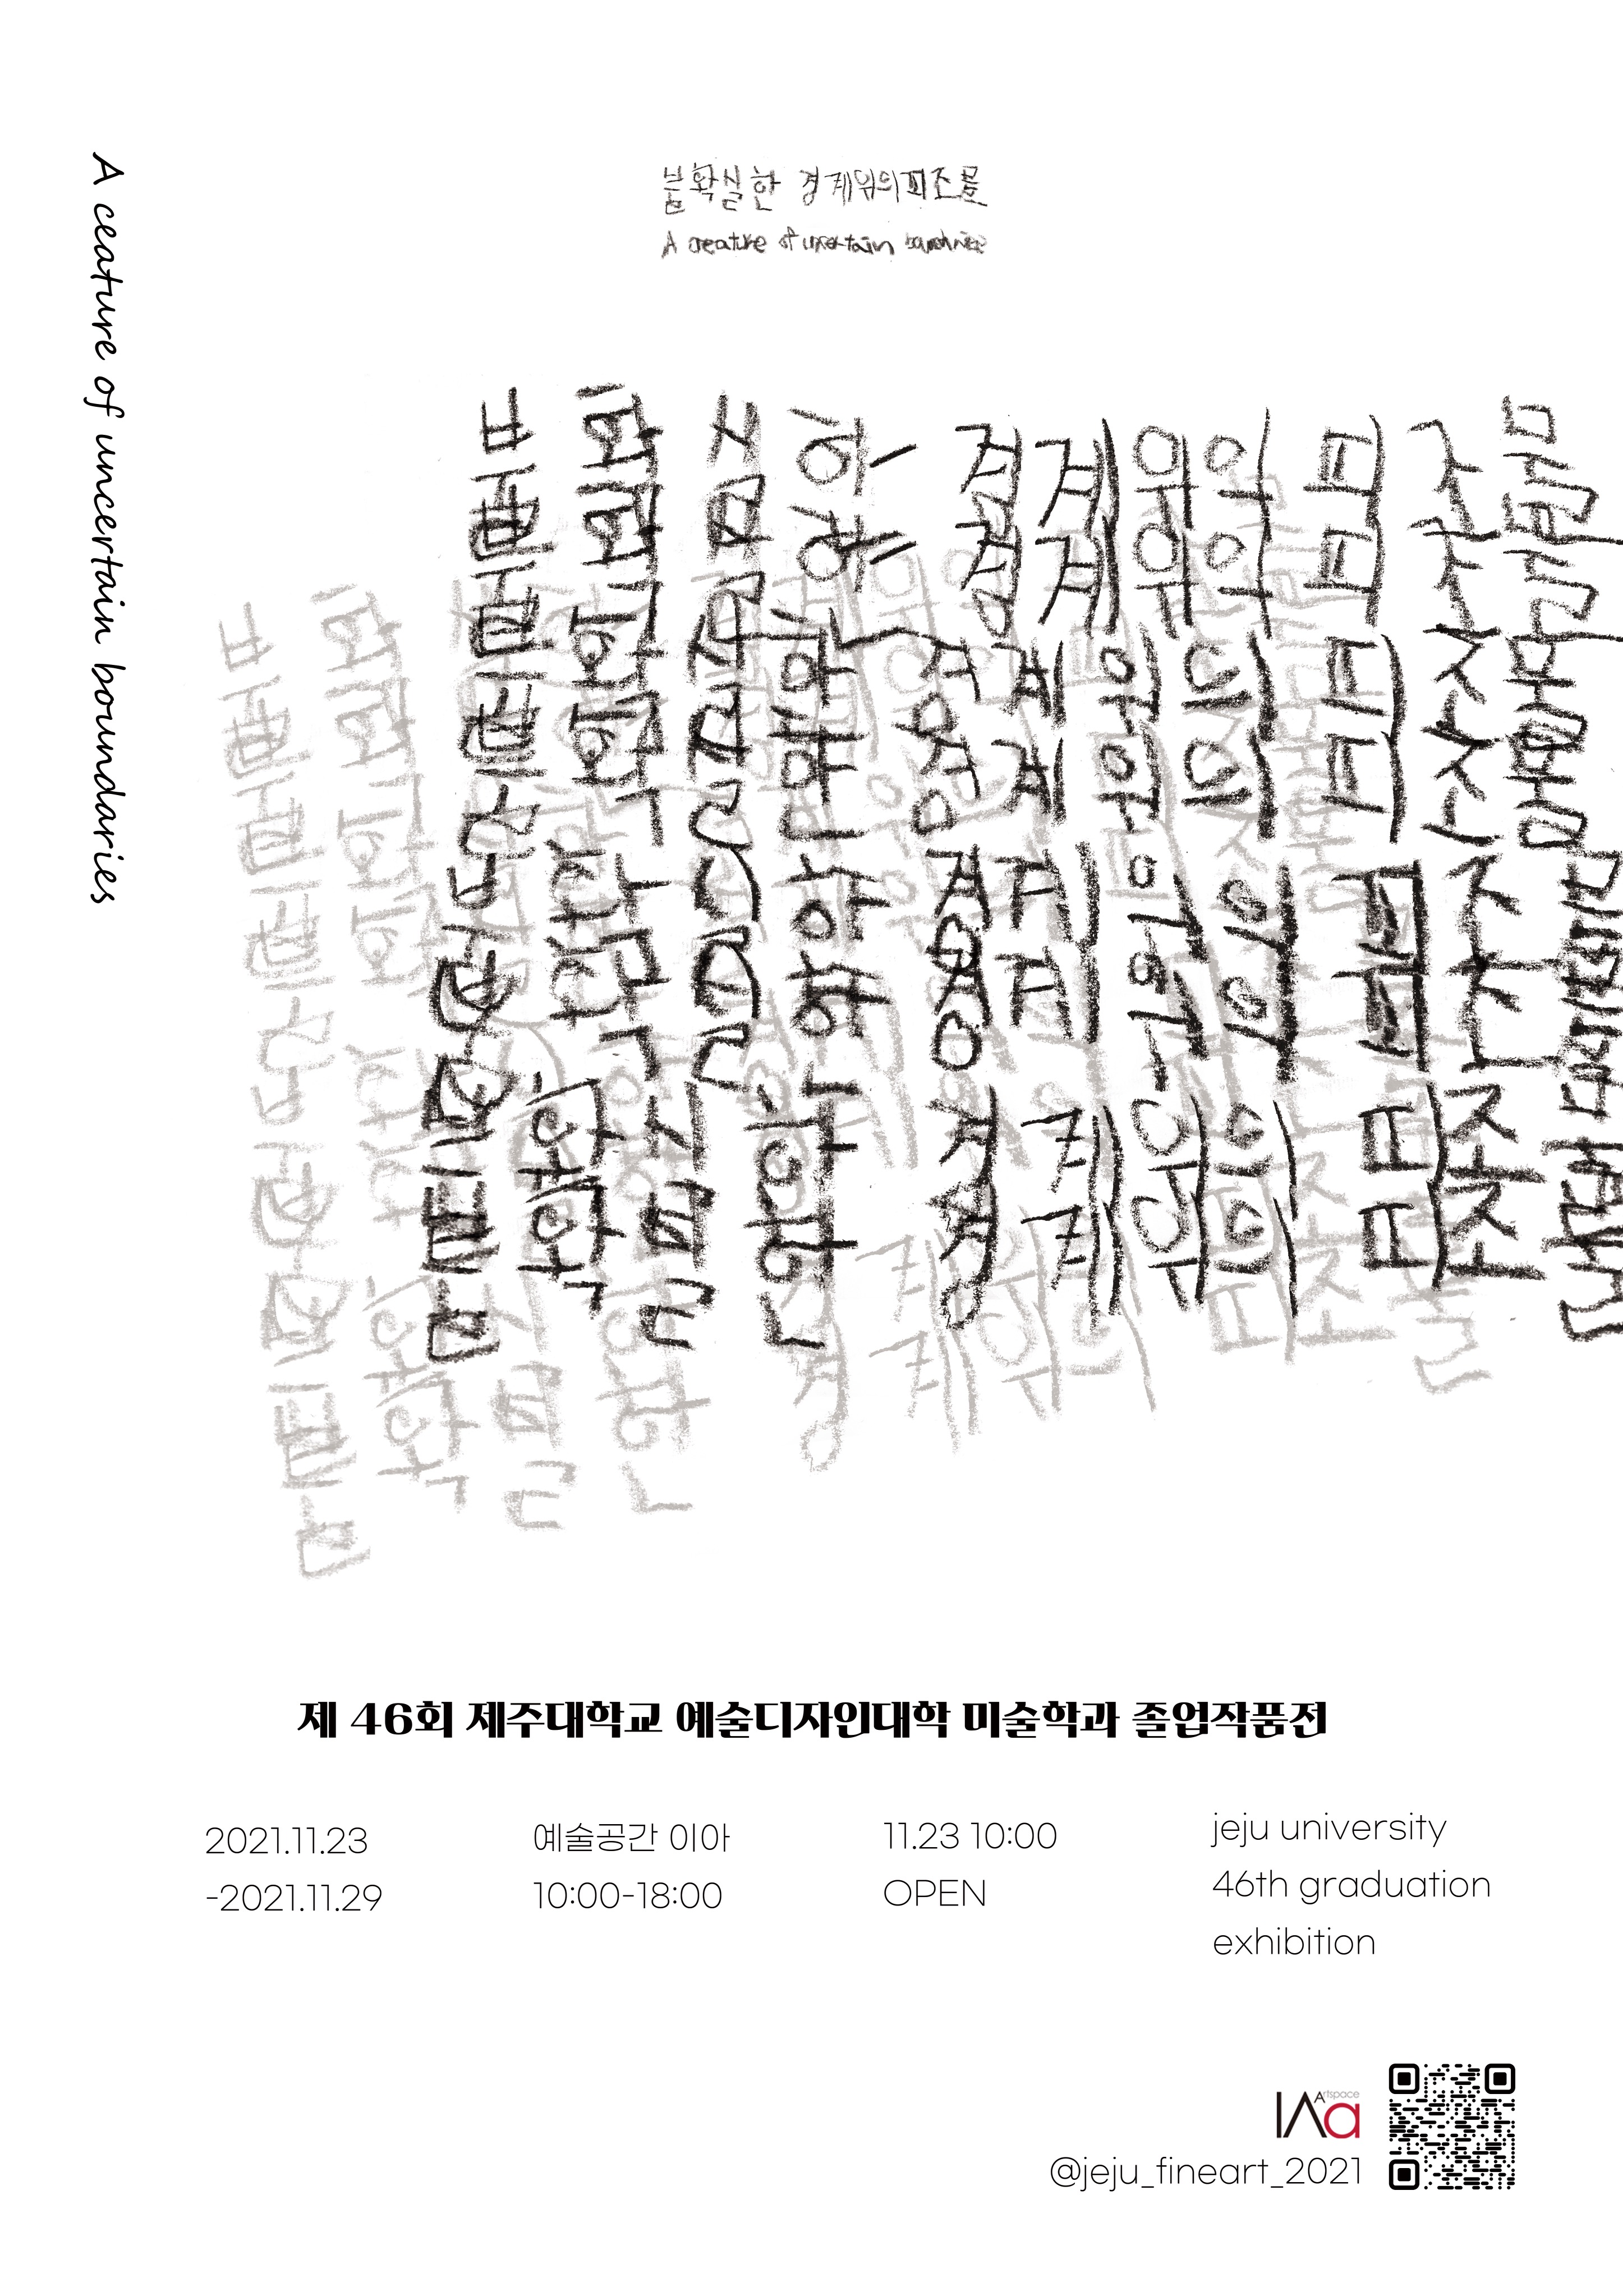 A ceature of uncertain boundaries
불확실한 경계위의피조물
A creature of uncertain boundaries
불확실한 경계위의피조물
제 46회 제주대학교 예술디자인대학 미술학과 졸업작품전
2021.11.23
-2021.11.29
예술공간 이아
10:00-18:00
11.23 10:00
OPEN
jeju university
46th graduation
exhibition
Artspace
IAa
@jeju_fineart_2021